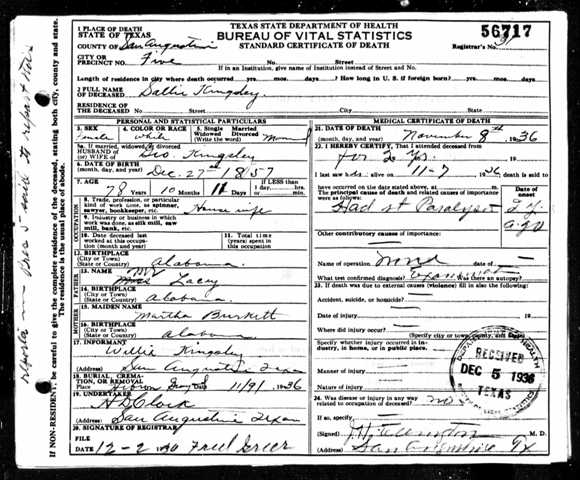 TEXAS STATE DEPARTMENT OF HEALTH
BUREAU OF VITAL STATISTICS
STANDARD CERTIFICATE OF DEATH
56717
Registrar's No.
1 PLACE OF DEATH
STATE OF TEXAS
COUNTY OF San Augustine
CITY OR PRECINCT NO. Five No. Street
If in an Institution, give name of Institution instead of Street and No.
Length of residence in city where death occurred yrs. mos. days ? How long in U. S. if foreign born? yrs. mos. days
2 FULL NAME OF DECEASED Sallie Kingsley
RESIDENCE OF THE DECEASED No. Street City State
PERSONAL AND STATISTICAL PARTICULARS
3. SEX
4. COLOR OR RACE white
5. Single Widowed Married Divorced (write the word)
5a. If married, widowed or divorced
HUSBAND OF
(or) WIFE OF Geo. Kingsley
6. DATE OF BIRTH
(month, day, and year) Dec 27th 1857
7. AGE 78 Years 10 Months 11 Days If LESS than 1 day, hrs. min.
OCCUPATION
8. Trade, profession, or particular kind of work done, as spinner, sawyer, bookkeeper, etc. House wife
9. Industry or business in which work was done, as silk mill, saw mill, bank, etc.
10. Date deceased last worked at this occupation (month and year)
11. Total time (years) spent in this occupation
12. BIRTHPLACE
(City or Town)
(State or Country) Alabama
FATHER
13. NAME Lacey
14. BIRTHPLACE
(City or Town)
(State or Country) Alabama
MOTHER
15. MAIDEN NAME Martha Burkett
16. BIRTHPLACE
(City or Town)
(State or Country) Alabama
17. INFORMANT Willie Kingsley
(Address) San Augustine Texas
18. BURIAL, CREMATION, OR REMOVAL
Place Date 11/9 1936
19. UNDERTAKER H D Clark
(Address) San Augustine Texas
20. SIGNATURE OF REGISTRAR
FILE DATE 12-2 Greer
MEDICAL CERTIFICATE OF DEATH
21. DATE OF DEATH
(month, day, and year) November 8th, 1936
22. I HEREBY CERTIFY, That I attended deceased from
I last saw h alive on 11-7, 1936 death is said to
have occurred on the date stated above, at m.
The principal cause of death and related causes of importance were as follows:
Date of onset
Had Paralysis
ago
Other contributory causes of importance:
Name of operation Date of
What test confirmed diagnosis? Was there an autopsy?
23. If death was due to external causes (violence) fill in also the following:
Accident, suicide, or homicide?
Date of injury 19
Where did injury occur?
(Specify city or town, county, and State)
Specify whether injury occurred in industry, in home, or in public place.
Manner of injury
Nature of injury
24. Was disease or injury in any way related to occupation of deceased?
If so, specify
(Signed) M. D.
(Address) San Augustine Tx
RECEIVED
DEC 5 1936
TEXAS
If NON-RESIDENT, Be careful to give the complete residence of the deceased, stating both city, county and state.
The residence is the usual place of abode.